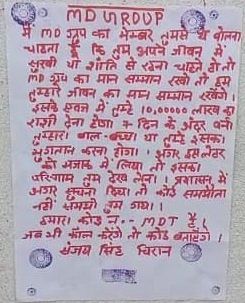 MD GROUP
मैं MD ग्रुप का मेम्बर तुमसे ये बोलना
चाहता हूँ कि तुम अपने जीवन में
सुखी या शांति से रहना चाहते हो तो
MD ग्रुप का मान सम्मान रखो तो हम
तुम्हारे जीवन का मान सम्मान रखेंगे।
इसके एवज में तुम्हे 10,00000 लाख का
राशी देना होगा 7 दिन के अंदर वर्ना
तुम्हारा बाल-बच्चा या तुम्हे इसका
भुगतान करना होगा। अगर इस लेटर
को मजाक में लिया तो इसका
परिणाम तुम देख लेना। प्रशासन में
अगर सूचना दिया तो कोई समझौता
नहीं समझो तुम गया।
हमारा कोड नं-- MDT है
जब भी कॉल करेंगे तो कोड बताएंगे।
संजय सिंह